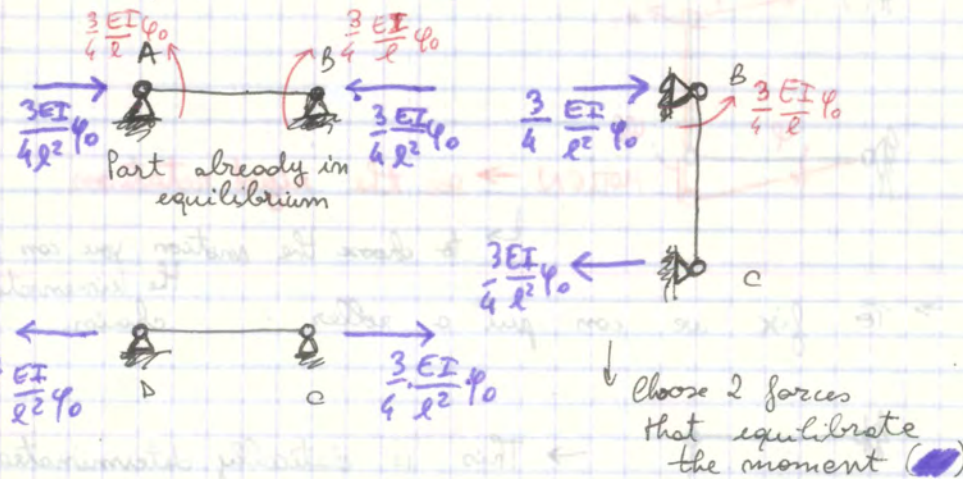 3/4 EI/l φ₀
A
3/4 EI/l φ₀
B
3/4 EI/l² φ₀
3/4 EI/l² φ₀
Part already in
equilibrium
3/4 EI/l² φ₀
B
3/4 EI/l φ₀
3/4 EI/l² φ₀
C
EI/l² φ₀
D
C
3/4 · EI/l² φ₀
↓ Choose 2 forces
that equilibrate
the moment ( )